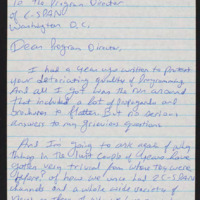 To the Program Director
of C-SPAN
Washington D.C.
Dear Program Director,
I had a year ago written to protest
your deteriorating quality of Programming
And all I got was the run around
that included a lot of propaganda and
brochures to flatter. But no serious
answers to my grievious questions.
And I'm going to ask again of why
things in the last couple of years have
gotten very trivial from when they were
before? of how we once had 2 C-SPAN
channels and a whole wide variety of